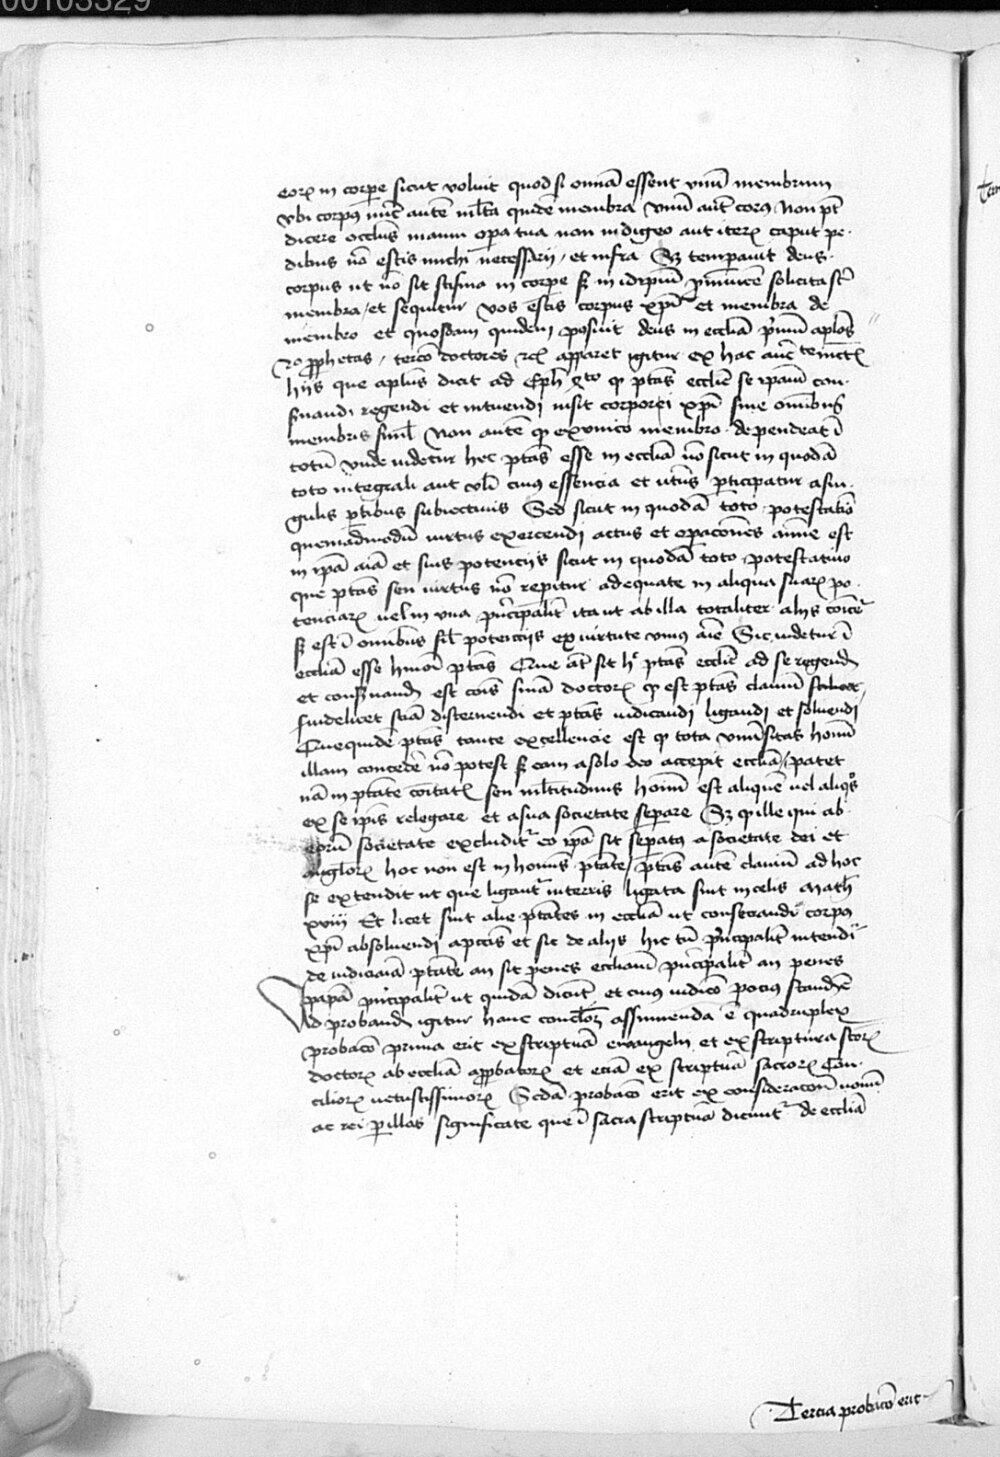 00103329
eorū in corpe sicut voluit quod si omnia essent vnū membrum
vbi corpus nūc autē mlta quidē membra vnū aūt corpꝰ Non pt
dicere occlus manui opa tua non indigeo aut iterū caput pe
dibus nō estis michi necessarij / et infra Sꝫ temperauit deus
corpus ut nō sit scisma in corpe sꝫ in idipsū pro inuicē solicita st
membra / et sequitur vos estis corpus xpi et membra de
membro et quosdam quidem posuit deus in ecclīa pmū aplos
2o prophetas / tercō doctores rc apparet igitur ex hac auctē
hijs que aplus dicit ad Eph 4to qꝫ ptas ecclīe se ipam con
seruandi regendi et intuendi insit corporei xpi siue omībus
membris siml Non autē qꝫ ex vnico membro dependeat ī
totū vnde uidetur hec ptas esse in ecclīa nō sicut in quodā
toto integrali aut vlī cuius essencia et utus participatur a sin
gulis ptibus subiectiuis Sed sicut in quodā toto potestatiō
quemadmodū uirtus exercendi actus et operacōnes anime est
in ipā aīa et suis potencijs sicut in quodā toto potestatiuo
que ptas seu uirtus nō repitur adequate in aliqua suarū po
tenciarū uel in vna principalit ita ut ab illa totaliter alijs
sꝫ est ī omnibus sil potencijs ex uirtute vnius aīe Sic uidetur ī
ecclīa esse hmōi ptas Que āt sit hec ptas ecclīe ad se regend
et conseruand est cōis sniā doctorū qꝫ est ptas clauiū
siuidelicet sciā discernendi et ptas iudicandi ligandi et soluendi
Que quidē ptas tante excellencie est qꝫ tota vniūsitas hominū
illam concedē nō potest sꝫ eam a solo deo accepit ecclīa / patet
nā in ptate seu mltitudinis hoīm est aliquē uel aliqos
ex se ipis relegare et a sua societate separare Sꝫ qꝫ ille qui ab
eorū societate excluditur eo ipō sit separatus a societate dei et
anglorū hoc non est in homīs ptate / ptas autē clauiū ad hoc
se extendit ut que ligantur in terris ligata sint in celis Math
xviij Et licet sint alie ptates in ecclīa ut consecrandi corpus
xpi absoluendi a pctīs et sic de alijs hic tn principalit intendit
de iudiciaria ptate an sit penes ecclīam principalit an penes
papā principalit ut quidā dicūt et cuius iudicō pocius
Ad proband igitur hanc assumenda ē quadruplex
probacō prima erit ex scriptura ewangelij et ex scriptura scōrū
doctorū ab ecclīa approbatorū et etiā ex scriptura sacrorū Con
ciliorū uetustissimorū Scda probacō erit ex consideracōne noīm
ac rei p illas significate que ī sacra scriptura dicunt de ecclīa
Tercia probacō erit